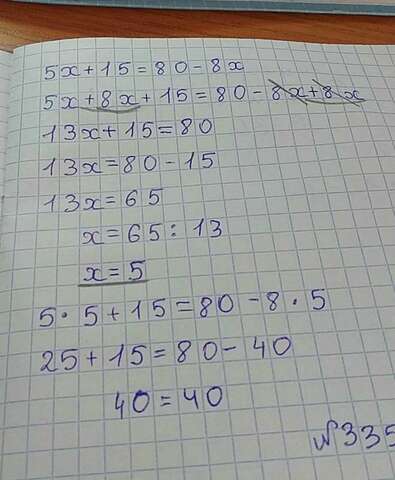 5x+15=80-8x
5x+8x+15=80-8x+8x
13x+15=80
13x=80-15
13x=65
x=65:13
x=5
5·5+15=80-8·5
25+15=80-40
40=40
№335